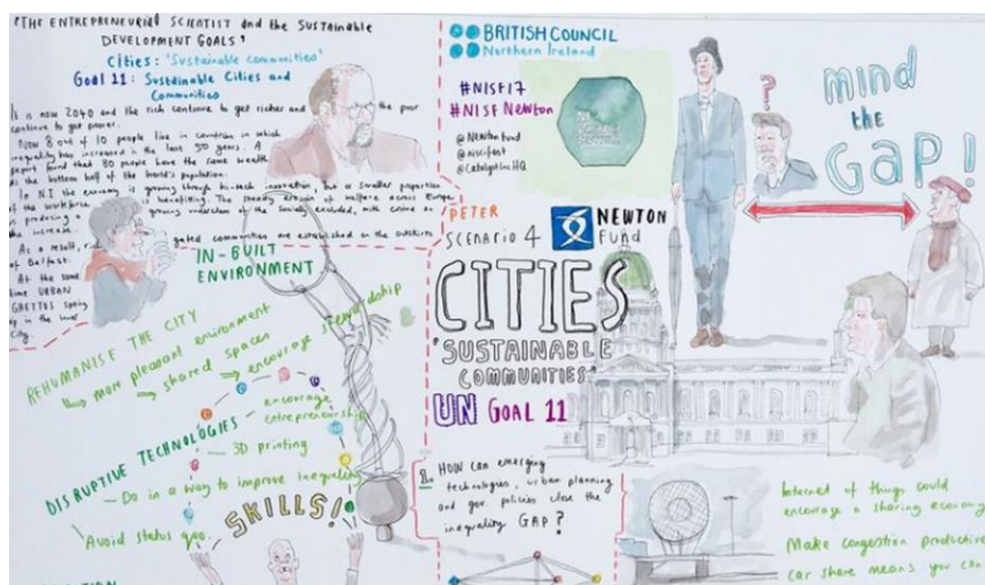 "THE ENTREPRENEURIAL SCIENTIST and the SUSTAINABLE
DEVELOPMENT GOALS"
Cities: 'Sustainable communities'
Goal 11: Sustainable Cities and
Communities
It is now 2040 and the rich continue to get richer and the poor
continue to get poorer.
Now 8 out of 10 people live in countries in which
inequality has increased in the last 30 years. A
report found that 80 people have the same wealth
as the bottom half of the world's population.
In N.I the economy is growing through hi-tech innovation, but a smaller proportion
of the workforce is benefitting. The steady erosion of welfare across Europe
is producing a growing underclass of the socially excluded, with crime on
the increase.
As a result, gated communities are established on the outskirts
of Belfast.
At the same
time URBAN
GHETTOS spring
up in the inner
city.
IN-BUILT
ENVIRONMENT
REHUMANISE THE CITY
more pleasant environment
shared spaces
encourage stewardship
DISRUPTIVE TECHNOLOGIES
encourage
entrepreneurship
3D printing
Do in a way to improve inequality
Avoid status quo.
SKILLS!
BRITISH COUNCIL
Northern Ireland
#NISF17
#NISFNewton
@NewtonFund
@niscifest
@CatalystIncHQ
PETER
SCENARIO 4
NEWTON
Fund
CITIES
'SUSTAINABLE
COMMUNITIES'
UN GOAL 11
1. HOW can emerging
technologies, urban planning
and gov. policies close the
inequality GAP?
?
mind
the
GAP!
Internet of things could
encourage a sharing economy
Make congestion productive
car share means you can